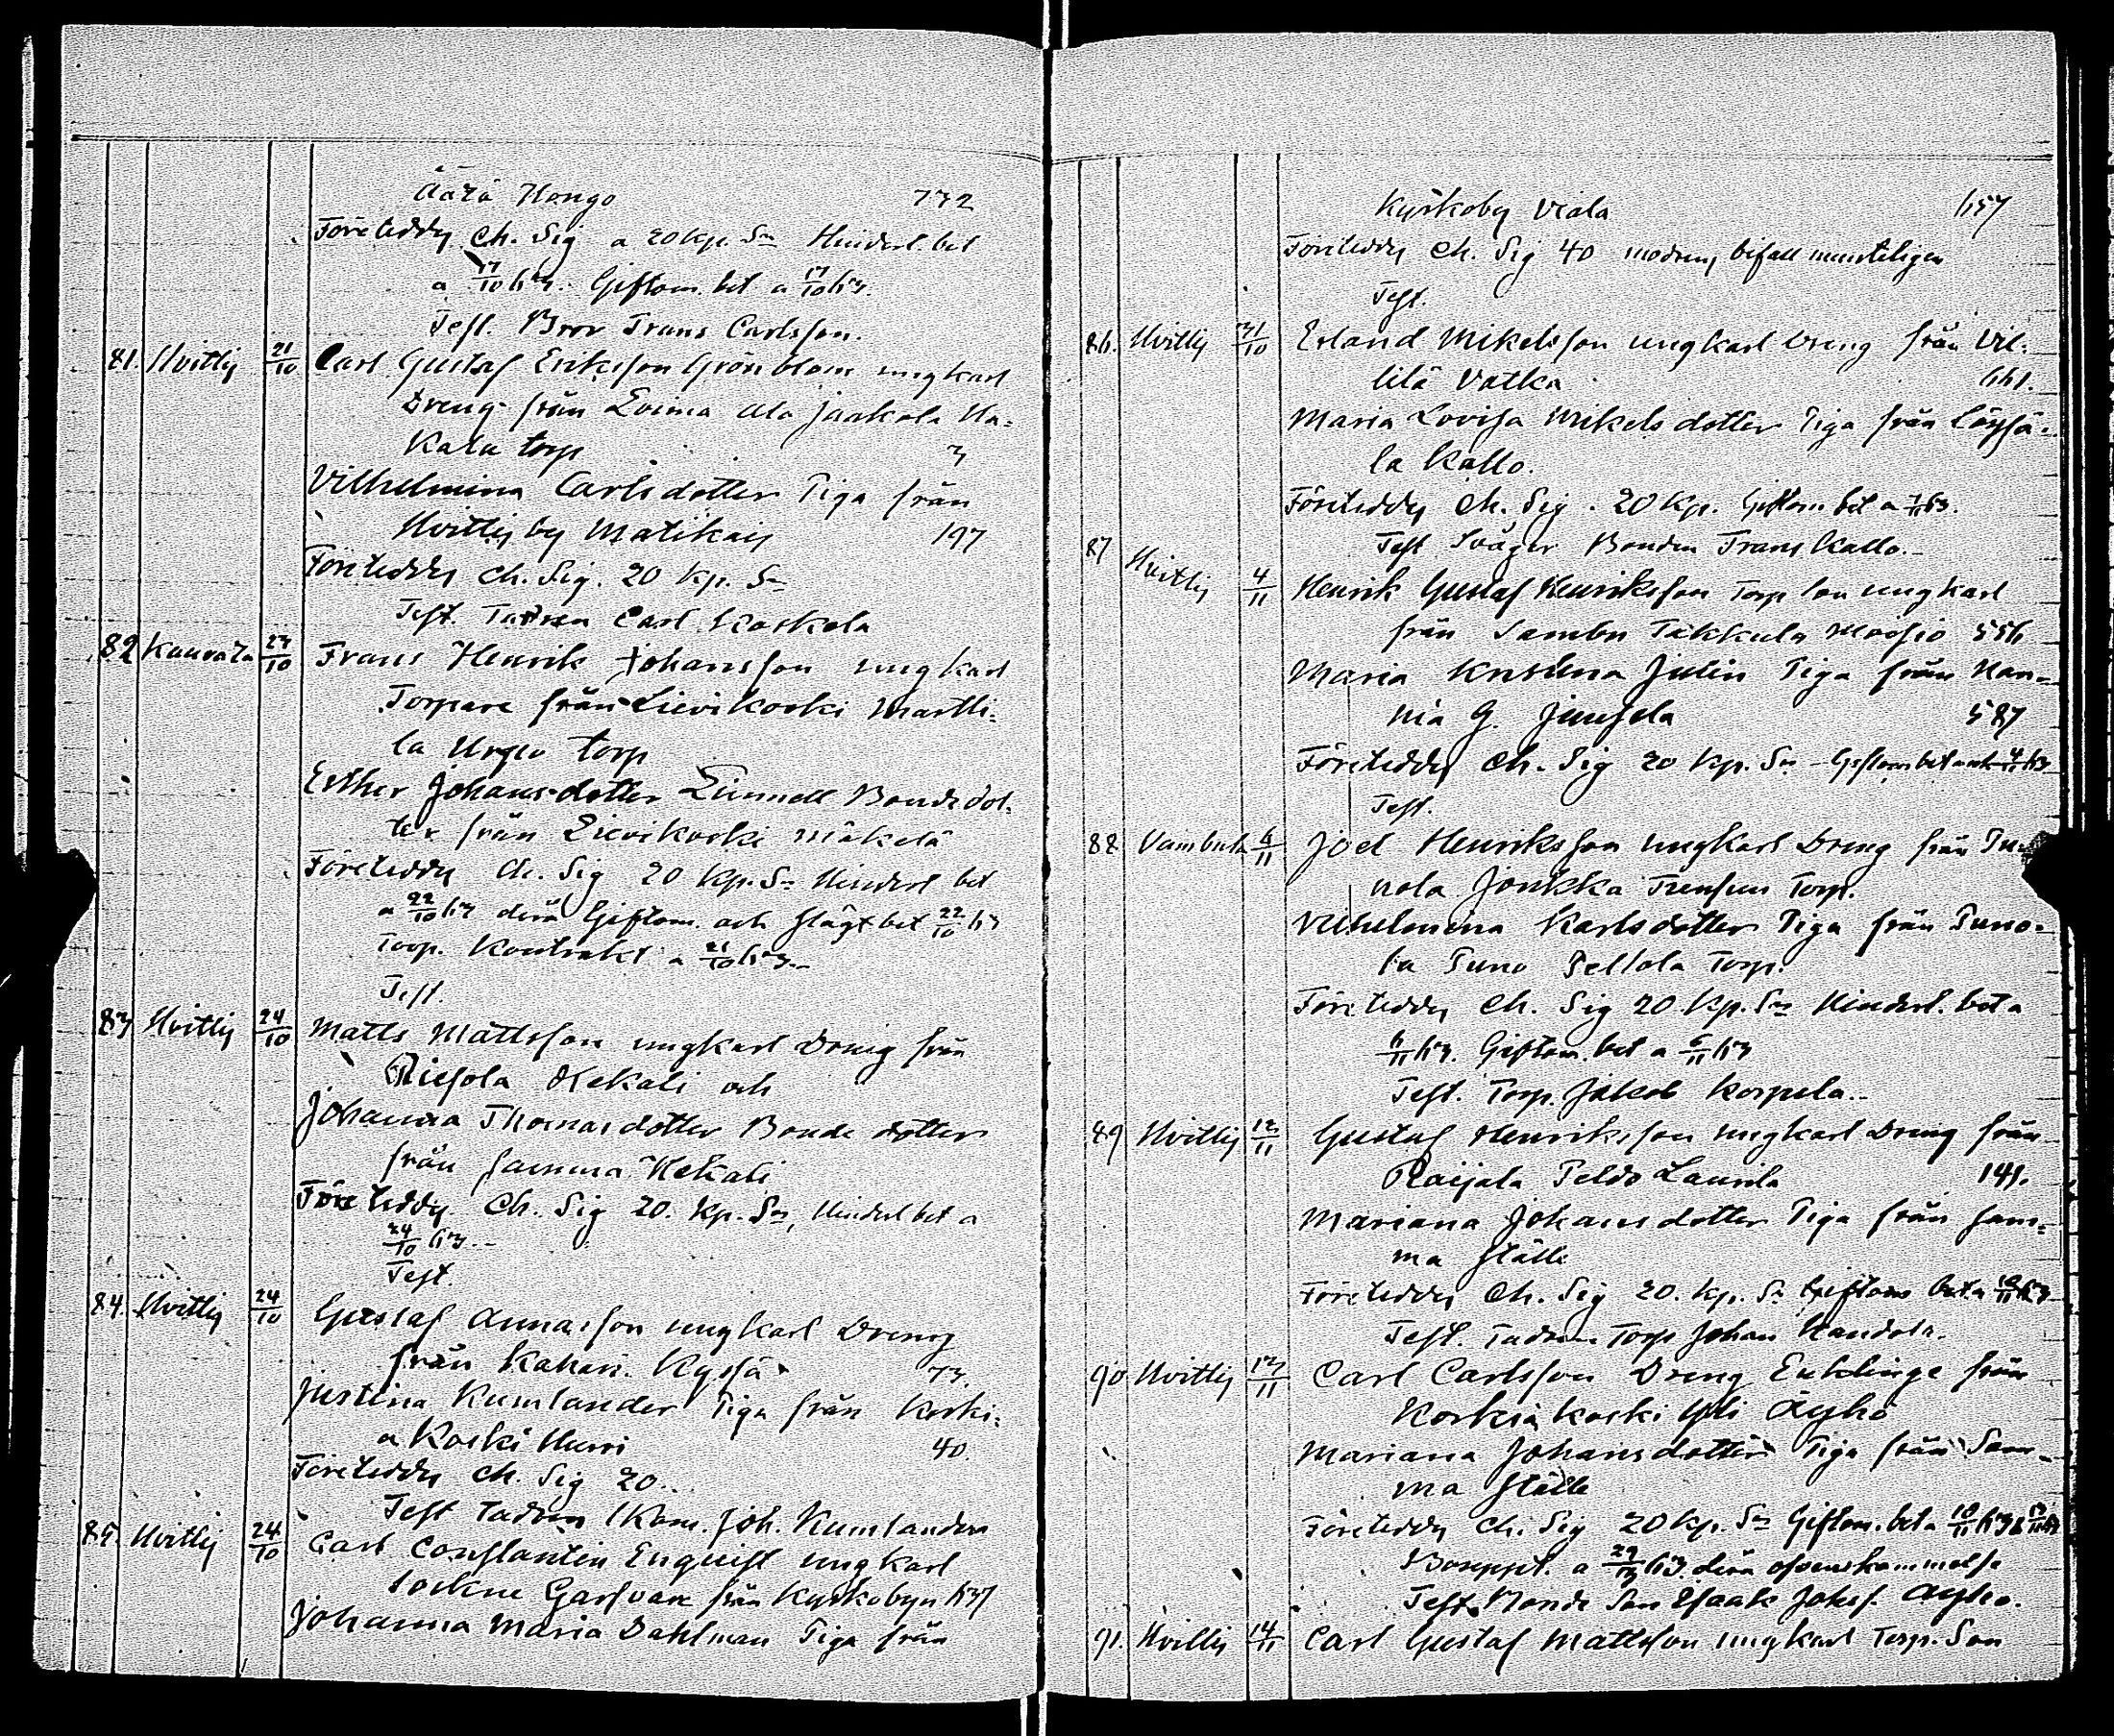 Äärä Hongo 732
Företeddes Ch. Sig a 20 Kp. Sr Hinderl. bet
a 17/10 63. Giftom. bet a 17/10 63.
Test. Bror Frans Carlsson.
81. Hvittis 21/10 Carl Gustaf Eriksson Grönblom ungkarl
Dreng från Loima Ala Jaakola Ha-
kala torp 3
Vilhelmina Carlsdotter Piga från
Hvittis by Matikais 197
Företeddes Ch. Sig. 20 Kp. Sr
Test. Fadren Carl Koskela
82 Kauvatsa 23/10 Frans Henrik Johansson ungkarl
Torpare från Lievikoski Martti-
la Urpo torp
Esther Johansdotter Linnell Bondedot-
ter från Lievikoski Mäkelä
Företeddes Ch. Sig 20 Kp. Sr Hinderl bet
a 22/10 63 derå Giftom. och Slägt bet 22/10 63
Torp. Kontrakt a 21/10 63.
Test.
83 Hvittis 24/10 Matts Mattsson ungkarl Dreng från
Riesola Kekali och
Johanna Thomasdotter Bonde dotter
från samma Kekali
Företeddes Ch. Sig 20. Kp. Sr, Hinderl bet a
24/10 63.
Test.
84. Hvittis 24/10 Gustaf Annasson ungkarl Dreng
från Kahari Kyssä 73.
Justina Kumlander Piga från Koski-
a Koski Hurri 40.
Företeddes Ch. Sig 20.
Test Fadren Kom. Joh. Kumlander
85. Hvittis 24/10 Carl Constantin Enquist ungkarl
Sockne Garfvare från Kyrkobyn 637
Johanna Maria Dahlman Piga från
Kyrkoby Viala 657
Företeddes Ch. Sig 40 modrens bifall munteligen
Test.
86. Hvittis 31/10 Erland Mikelsson ungkarl Dreng från Vil-
lilä Vatka 661.
Maria Lovisa Mikelsdotter Piga från Löysä-
la Kallo.
Företeddes Ch. Sig. 20 Kp. Giftom bet a 1/11 63.
Test Svåger Bonden Frans Kallo.
87 Hvittis 4/11 Henrik Gustaf Henriksson Torp son ungkarl
från Sambu Takkula Moisio 556
Maria Kristina Julin Piga från Nan-
nia G. Junsela 587
Företeddes Ch. Sig 20 Kp. Sr Giftom bet 4/11 63
Test.
88 Vambula 6/11 Joel Henriksson ungkarl Dreng från Pu-
nola Jonkka Torp.
Vilhelmina Karlsdotter Piga från Puno-
la Puno Peltola Torp.
Företeddes Ch. Sig 20. Kp. Sr Hinderl. bet a
6/11 63. Giftom. bet a 6/11 63
Test. Torp. Jakob Korpela.
89 Hvittis 12/11 Gustaf Henriksson ungkarl Dreng från
Raijala Peldo Laurila 141.
Mariana Johansdotter Piga från sam-
ma ställe
Företeddes Ch. Sig 20. Kp. Sr Giftom bet a 10/11 63
Test. Fadren Torp Johan Handola.
90 Hvittis 13/11 Carl Carlsson Dreng Enklinge från
Korkiakoski Yli Äyhö
Mariana Johansdotter Piga från Sam-
ma ställe
Företeddes Ch. Sig 20 Kp. Sr Giftom. bet a 10/11 63
Bouppt. a 63. derå öfverenskommelse
Test. Bonde Son Isaak Johss. Äyhö.
91. Hvittis 14/11 Carl Gustaf Mattsson ungkarl Torp. Son